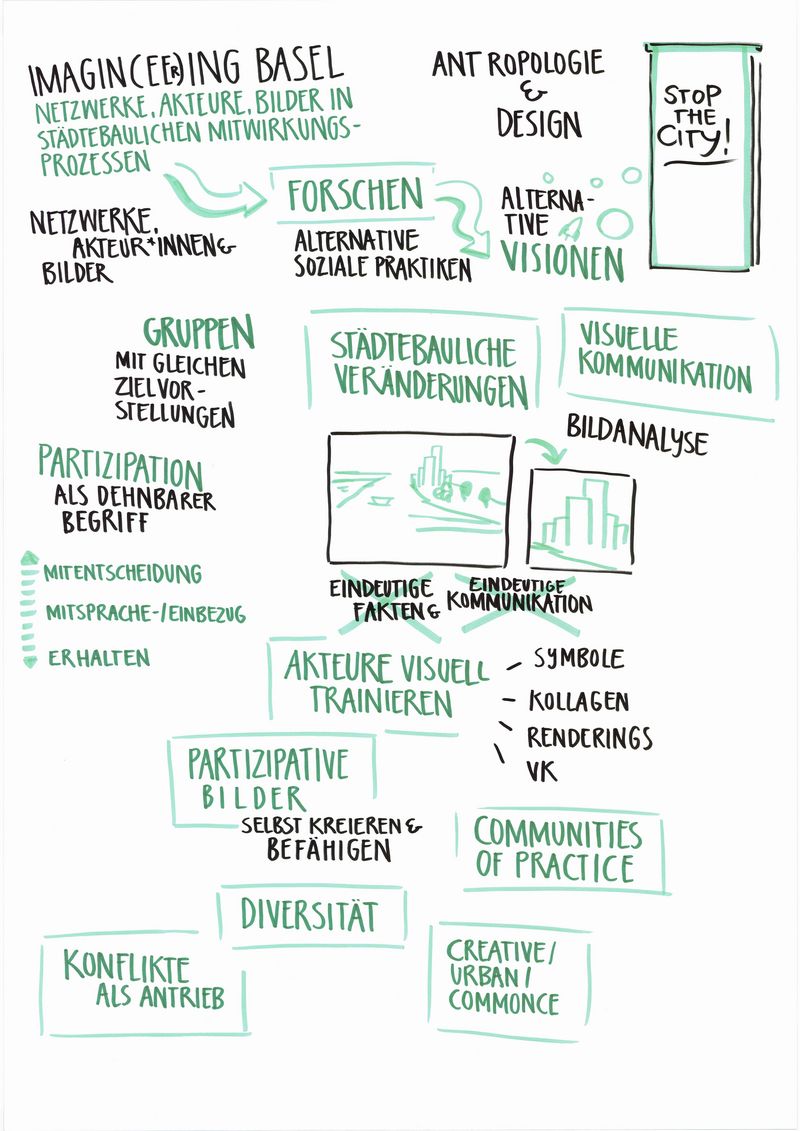 IMAGIN(EE(R)ING BASEL
NETZWERKE, AKTEURE, BILDER IN
STÄDTEBAULICHEN MITWIRKUNGS-
PROZESSEN
ANTROPOLOGIE
&
DESIGN
STOP
THE
CITY!
NETZWERKE,
AKTEUR*INNEN &
BILDER
FORSCHEN
ALTERNATIVE
SOZIALE PRAKTIKEN
ALTERNA-
TIVE
VISIONEN
GRUPPEN
MIT GLEICHEN
ZIELVOR-
STELLUNGEN
STÄDTEBAULICHE
VERÄNDERUNGEN
VISUELLE
KOMMUNIKATION
BILDANALYSE
PARTIZIPATION
ALS DEHNBARER
BEGRIFF
MITENTSCHEIDUNG
MITSPRACHE-/EINBEZUG
ERHALTEN
EINDEUTIGE
FAKTEN &
EINDEUTIGE
KOMMUNIKATION
AKTEURE VISUELL
TRAINIEREN
SYMBOLE
KOLLAGEN
RENDERINGS
VK
PARTIZIPATIVE
BILDER
SELBST KREIEREN &
BEFÄHIGEN
COMMUNITIES
OF PRACTICE
DIVERSITÄT
KONFLIKTE
ALS ANTRIEB
CREATIVE/
URBAN/
COMMONCE